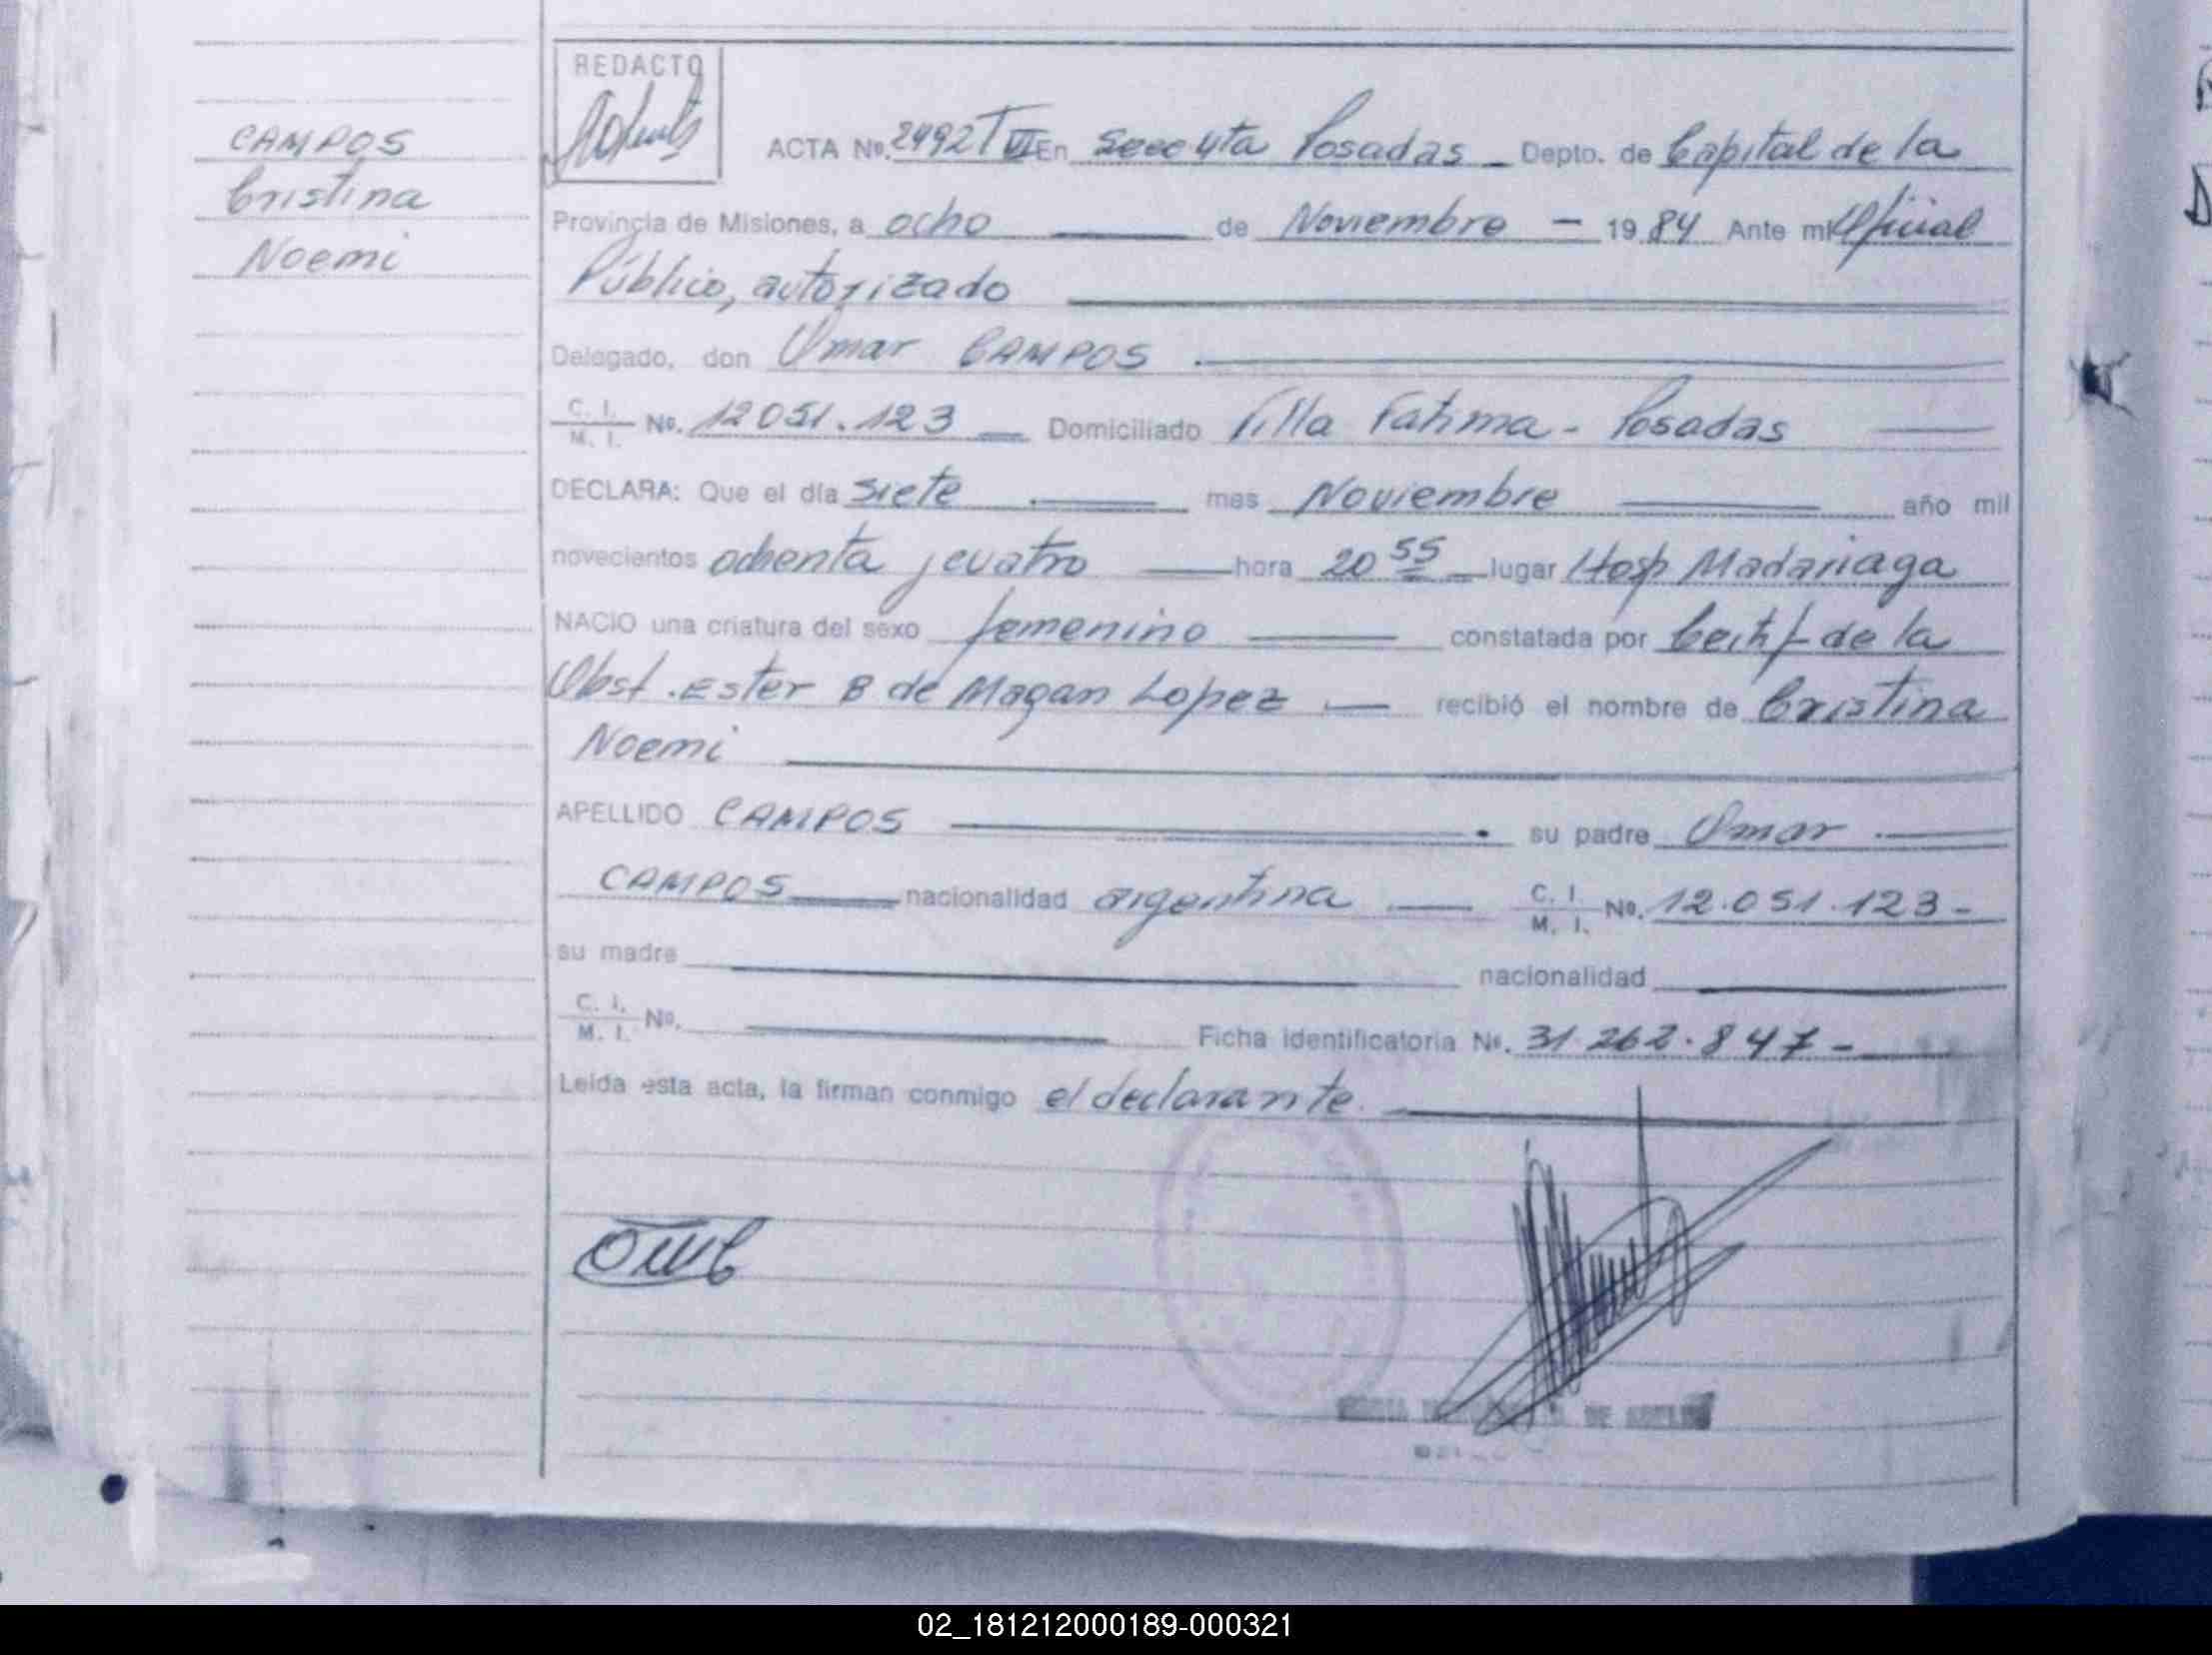 CAMPOS
Cristina
Noemi
REDACTO
ACTA Nº. 2492 T VII En Secc 4ta Posadas - Depto. de Capital de la
Provincia de Misiones, a ocho de Noviembre - 1984 Ante mi Oficial
Público, autorizado
Delegado, don Omar CAMPOS
C. I. M. I. Nº. 12051.123 Domiciliado Villa Fatima - Posadas
DECLARA: Que el día siete mes Noviembre año mil
novecientos ochenta y cuatro hora 20 55 lugar Hosp Madariaga
NACIO una criatura del sexo femenino constatada por Certif de la
Obst. Ester B de Magan Lopez recibió el nombre de Cristina
Noemi
APELLIDO CAMPOS su padre Omar
CAMPOS nacionalidad argentina C. I. M. I. Nº. 12.051.123-
su madre nacionalidad
C. I. M. I. Nº. Ficha identificatoria Nº. 31.262.847-
Leída esta acta, la firman conmigo el declarante
DE
02_181212000189-000321